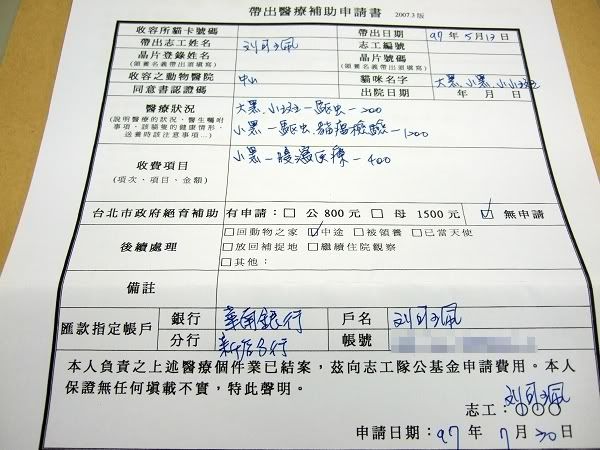 帶出醫療補助申請書 2007.3版
收容所貓卡號碼 帶出日期 97年5月13日
帶出志工姓名 志工編號
晶片登錄姓名 晶片號碼
(領養名義帶出須填寫) (領養名義帶出須填寫)
收容之動物醫院 中山 貓咪名字 大黑.小黑.小小斑
同意書認證碼 出院日期 年 月 日
醫療狀況 大黑.小斑一驅虫-200
(說明醫療的狀況、醫生囑咐 小黑一驅虫 貓瘟檢驗-1200
事項、該貓隻的健康情形、
送養時該注意事項...)
收費項目 小黑一腹瀉医療-400
(項次、項目、金額)
台北市政府絕育補助 有申請：□ 公800元 □ 母1500元 ☑ 無申請
後續處理 □回動物之家 ☑中途 □被領養 □已當天使
□放回捕捉地 □繼續住院觀察
□其他：
備註
匯款指定帳戶 銀行 華南銀行 戶名
分行 帳號
本人負責之上述醫療個件業已結案，茲向志工隊公基金申請費用。本人
保證無任何填載不實，特此聲明。
志工：○○○
申請日期：97年7月30日